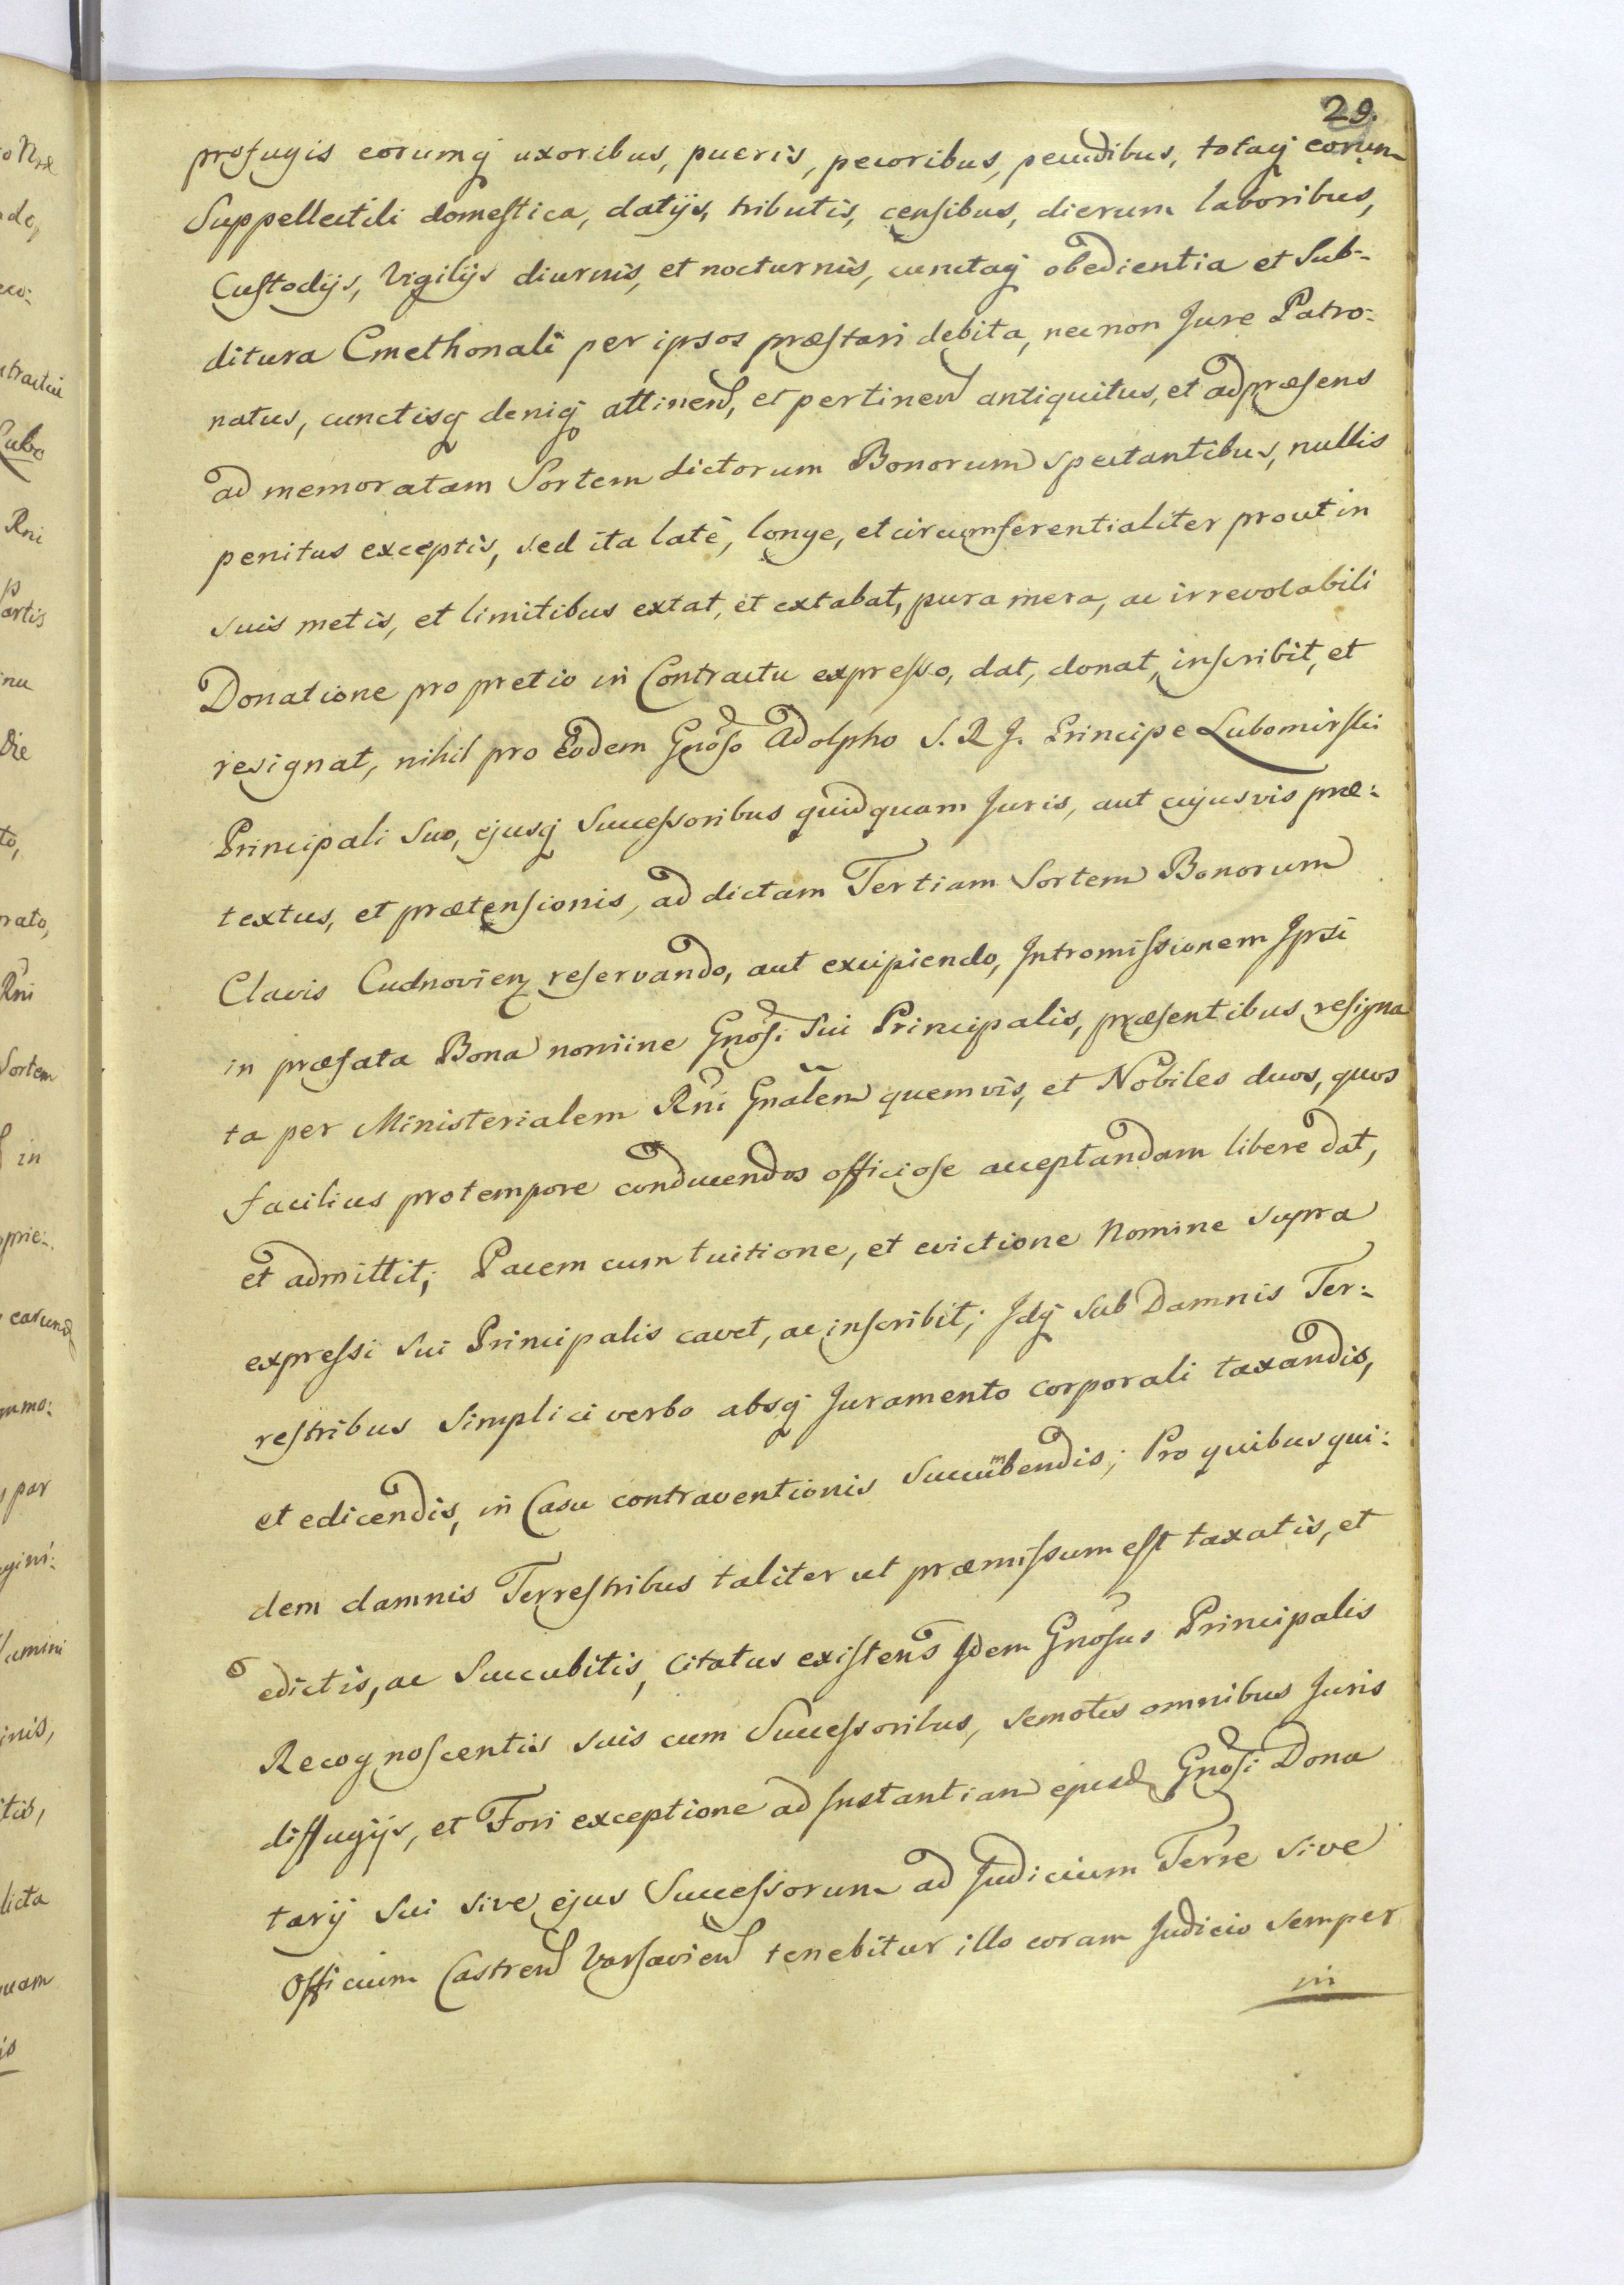 29.
profugis eorumq uxoribus, pueris, pecoribus, pecudibus, totaq eorum
Suppellectili domestica, datijs, tributis, censibus, dierum laboribus,
Custodijs, Vigilijs diurnis, et nocturnis, cunctaq obedientia et Sub-
ditura Cmethonali per ipsos præstari debita, necnon Jure Patro:
natus, cunctisq deniq attinen, et pertinen antiquitus, et ad præsens
ad memoratam Sortem dictorum Bonorum spectantibus, nullis
penitus exceptis, sed ita latè, longe, et circumferentialiter prout in
suis metis, et limitibus extat, et extabat, pura mera, ac irrevocabili
Donatione pro pretio in Contractu expresso, dat, donat, inscribit, et
resignat, nihil pro Eodem Gnoso Adolpho S. R J. Principe Lubomirski
Principali Suo, ejusq Successoribus quidquam Juris, aut cujusvis præ:
textus, et prætensionis, ad dictam Tertiam Sortem Bonorum
Clavis Cudnovien reservando, aut excipiendo, Intromissionem Ipsi
in præfata Bona nomine Gnosi Sui Principalis, præsentibus resigna
ta per Ministerialem Rni Gnalem quemvis, et Nobiles duos, quos
facilius pro tempore conducendos officiose acceptandam libere dat,
et admittit; Pacem cum tuitione, et evictione Nomine supra
expressi sui Principalis cavet, ac inscribit; Idq sub Damnis Ter:
restribus simplici verbo absq Juramento corporali taxandis,
et edicendis, in Casu contraventionis Succumbendis; Pro quibus qui:
dem damnis Terrestribus taliter ut præmissum est taxatis, et
edictis, ac Succubitis, Citatus existens Idem Gnosus Principalis
Recognoscentis suis cum Successoribus, semotis omnibus Juris
diffugijs, et Fori exceptione ad Instantiam ejusd Gnosi Dona
tarij sui sive ejus Successorum ad Judicium Terre sive
Officium Castren Varsavien tenebitur illo coram Judicio semper
in